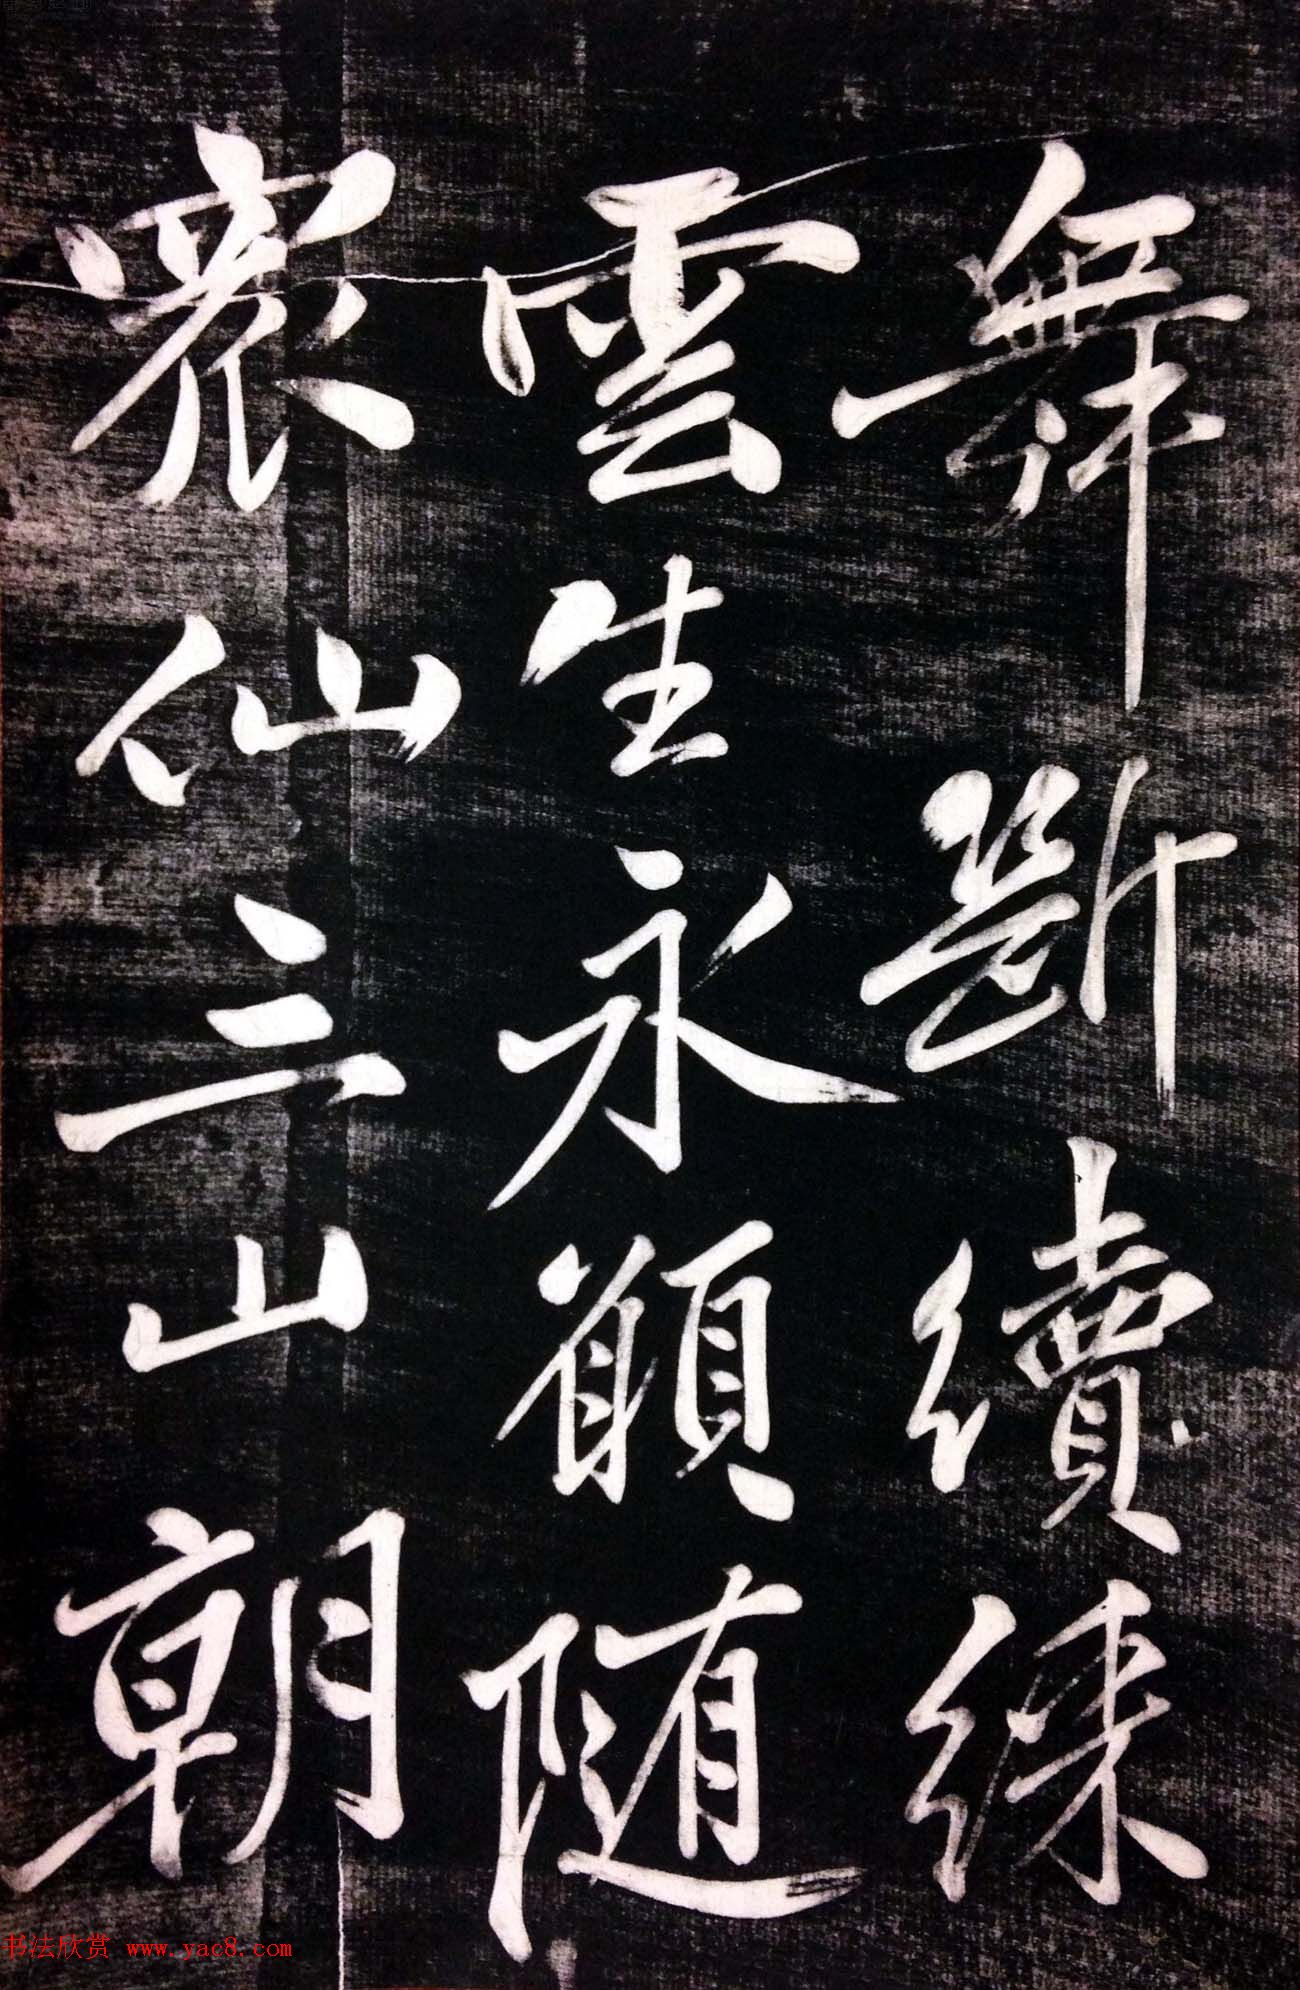 舞斷續綵
雲生永願隨
衆仙三山朝
书法欣赏 www.yac8.com